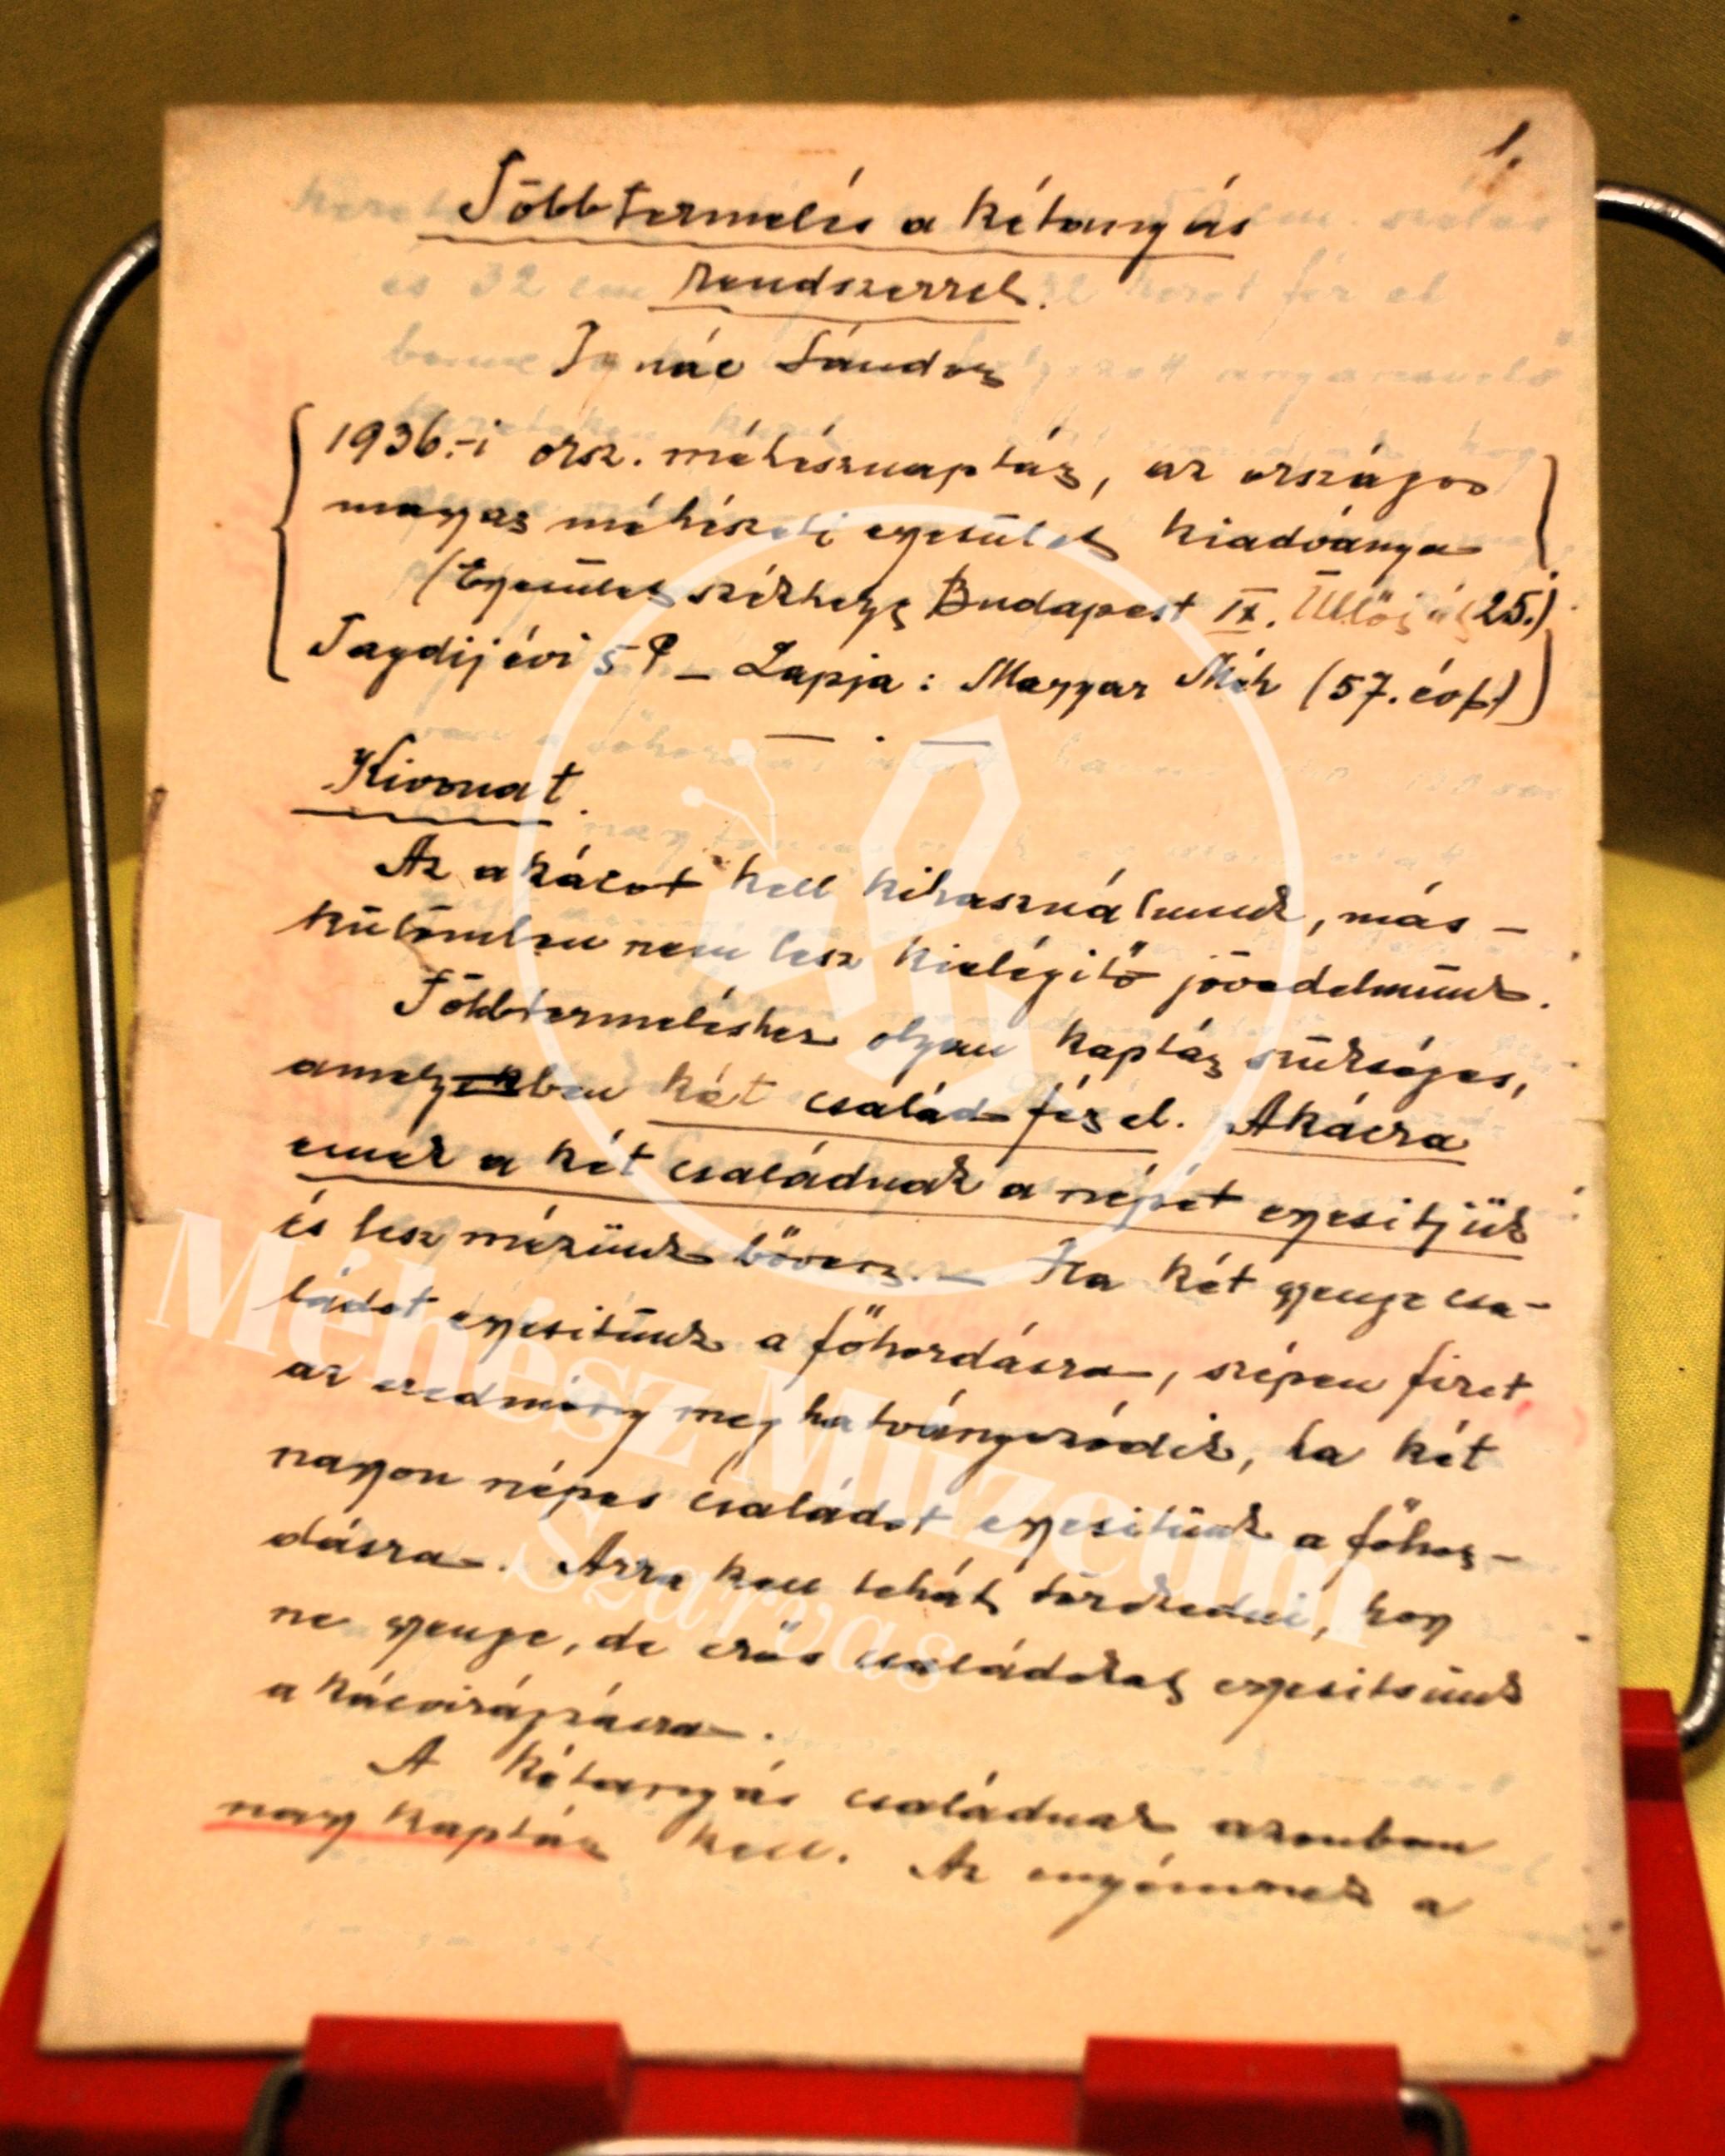 1.
Többtermelés a kétanyás
rendszerrel.
Ignác Sándor
1936.-i orsz. méhésznaptár, az országos
magyar méhészeti egyesület kiadványa
(Egyesület székhelye Budapest IX. Üllői út 25.)
Tagdíj évi 5 P – Lapja: Magyar Méh (57. évf.)
Kivonat.
Az akácot kell kihasználnunk, más-
különben nem lesz kielégítő jövedelmünk.
Többtermeléshez olyan kaptár szükséges,
amelyben két család fér el. Akácra
ennek a két családnak a népét egyesitjük
és lesz mézünk bőven. – Ha két gyenge csa-
ládot egyesitünk a főhordásra, szépen fizet,
az eredmény meghatványozódik, ha két
nagyon népes családot egyesitünk a főhor-
dásra. Arra kell tehát törekedni, hogy
ne gyenge, de erős családokat egyesitsünk
akácvirágzásra.
A kétanyás családnak azonban
nagy kaptár kell. Az enyémnek a
Méhész Múzeum
Szarvas